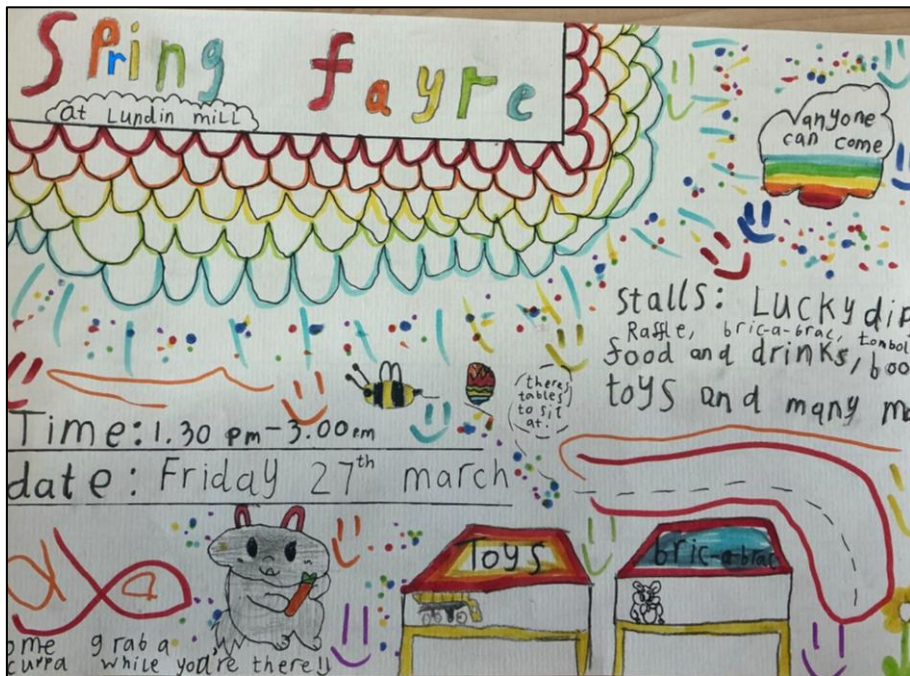 Spring fayre
at Lundin mill
anyone
can come
Stalls: Lucky dip
Raffle, bric-a-brac, tombol
food and drinks, boo
toys and many mo
there's
tables
to sit
at.
Time: 1.30 pm - 3.00 pm
date: Friday 27th march
Toys
bric-a-brac
ome grab a
cuppa while you're there!!